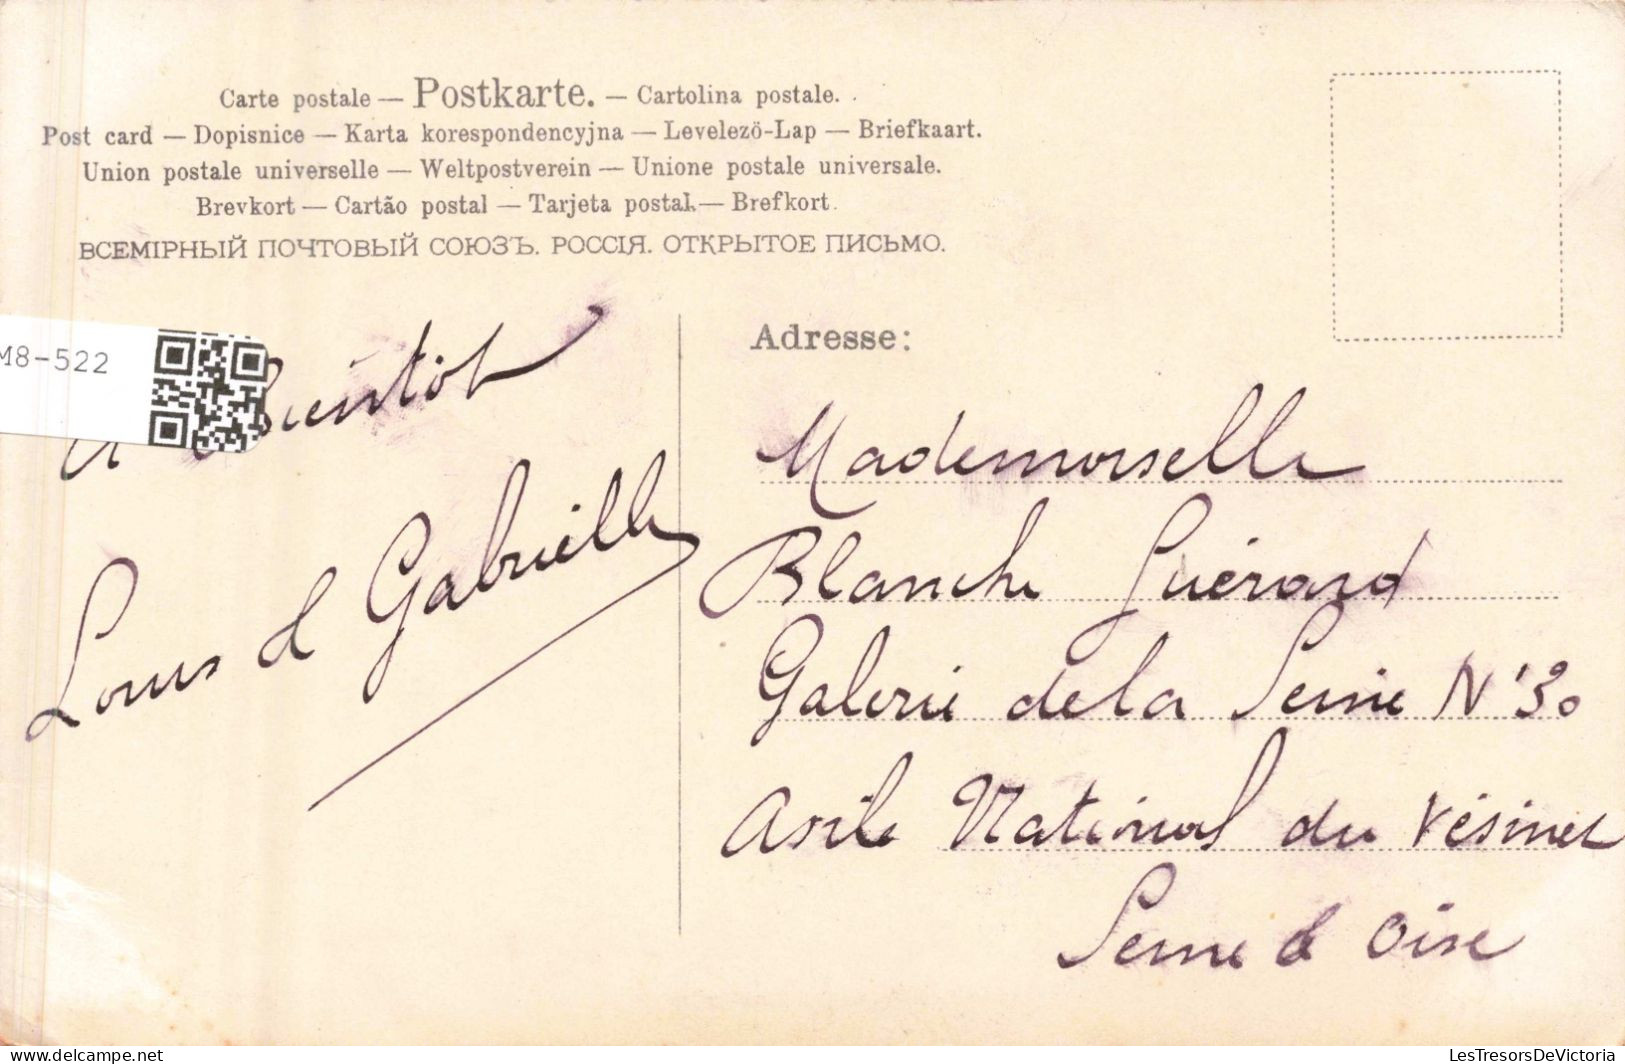 Carte postale — Postkarte. — Cartolina postale.
Post card — Dopisnice — Karta korespondencyjna — Levelezö-Lap — Briefkaart.
Union postale universelle — Weltpostverein — Unione postale universale.
Brevkort — Cartão postal — Tarjeta postal — Brefkort.
ВСЕМІРНЫЙ ПОЧТОВЫЙ СОЮЗЪ. РОССІЯ. ОТКРЫТОЕ ПИСЬМО.
M8-522
a Bientôt
Louis & Gabrielle
Adresse:
Mademoiselle
Blanche Guérard
Galerie de la Seine N° 30
Asile National du Vésinet
Seine & Oise
delcampe.net
LesTresorsDeVictoria